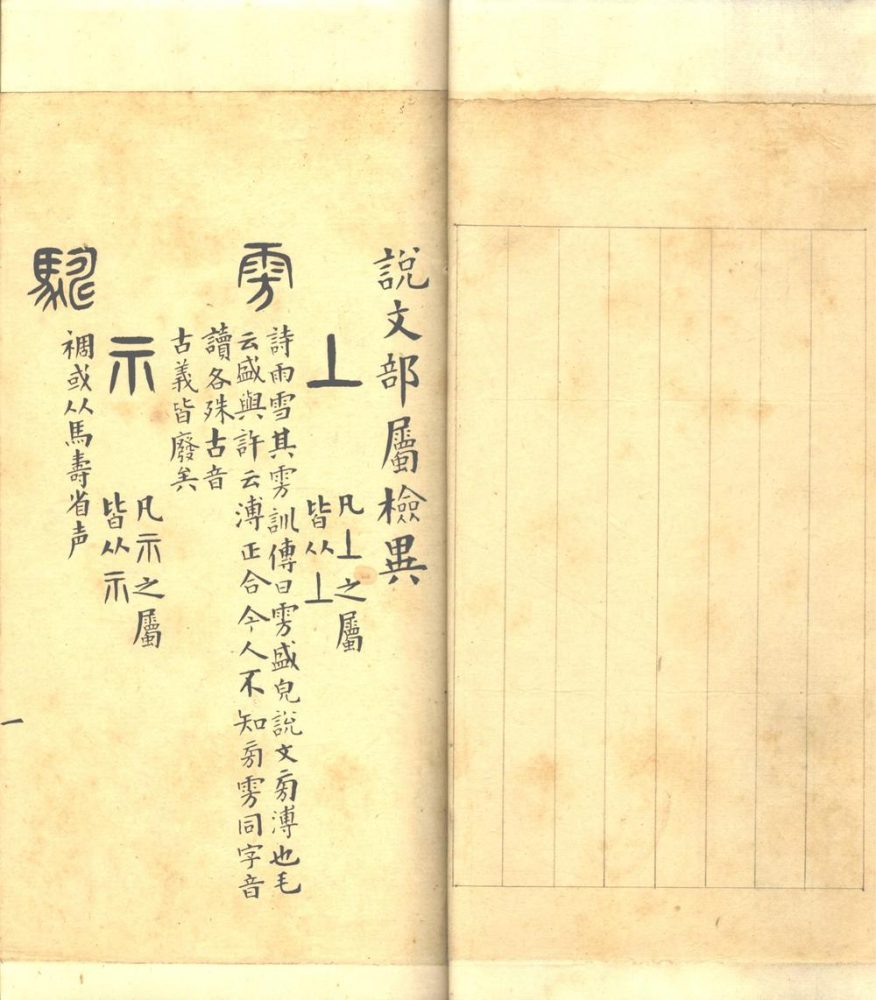 說文部屬檢異
丄
凡丄之屬
皆从丄
雱
詩雨雪其雱訓傳曰雱盛皃說文㫄溥也毛
云盛與許云溥正合今人不知㫄雱同字音
讀各殊古音
古義皆廢矣
示
凡示之屬
皆从示
禂或从馬壽省声
一